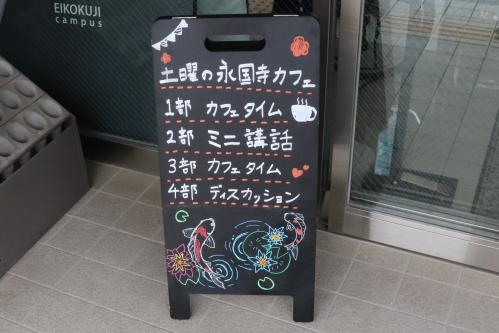 EIKOKUJI
campus
土曜の永国寺カフェ
1部 カフェタイム
2部 ミニ講話
3部 カフェタイム
4部 ディスカッション